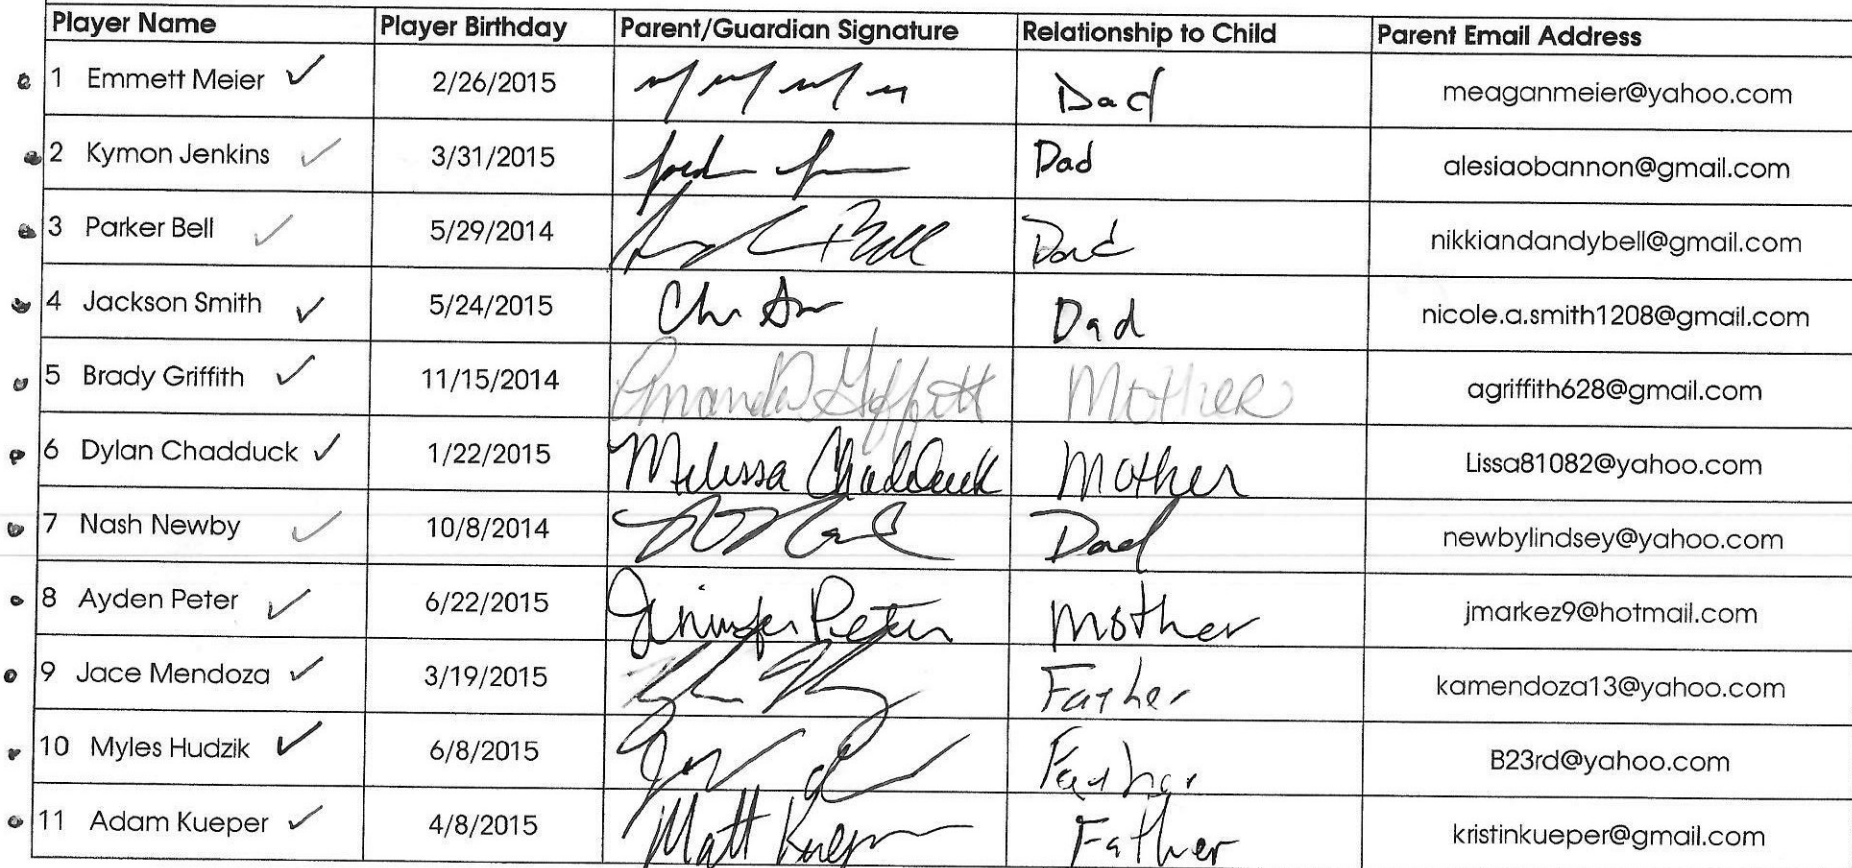 Player Name Player Birthday Parent/Guardian Signature Relationship to Child Parent Email Address
1 Emmett Meier ✓ 2/26/2015 Dad meaganmeier@yahoo.com
2 Kymon Jenkins ✓ 3/31/2015 Dad alesiaobannon@gmail.com
3 Parker Bell ✓ 5/29/2014 Bell Dad nikkiandandybell@gmail.com
4 Jackson Smith ✓ 5/24/2015 Dad nicole.a.smith1208@gmail.com
5 Brady Griffith ✓ 11/15/2014 Amanda Griffith Mother agriffith628@gmail.com
6 Dylan Chadduck ✓ 1/22/2015 Melissa Chadduck Mother Lissa81082@yahoo.com
7 Nash Newby ✓ 10/8/2014 Dad newbylindsey@yahoo.com
8 Ayden Peter ✓ 6/22/2015 Jennifer Peter Mother jmarkez9@hotmail.com
9 Jace Mendoza ✓ 3/19/2015 Father kamendoza13@yahoo.com
10 Myles Hudzik ✓ 6/8/2015 Father B23rd@yahoo.com
11 Adam Kueper ✓ 4/8/2015 Matt Kueper Father kristinkueper@gmail.com